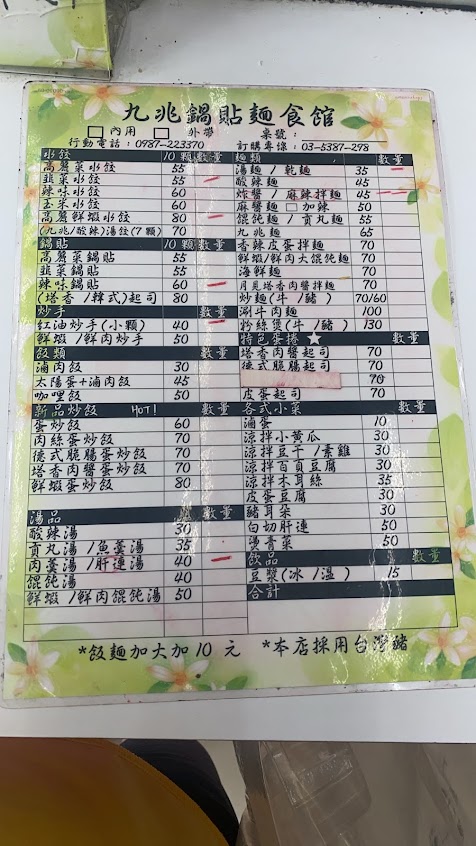 九兆鍋貼麵食館
內用 外帶 桌號：
行動電話：0987-223370 訂購專線：03-5387-298
水餃 10顆 數量
高麗菜水餃 55
韭菜水餃 55
辣味水餃 60
玉米水餃 60
高麗鮮蝦水餃 80
(九兆/酸辣)湯餃(7顆) 70
鍋貼 10顆 數量
高麗菜鍋貼 55
韭菜鍋貼 55
辣味鍋貼 60
(塔香/韓式)起司 80
炒手 數量
紅油炒手(小顆) 40
鮮蝦/鮮肉炒手 50
飯類 數量
滷肉飯 30
太陽蛋+滷肉飯 45
咖哩飯 50
新品炒飯 HOT! 數量
蛋炒飯 60
肉絲蛋炒飯 70
德式脆腸蛋炒飯 70
塔香肉醬蛋炒飯 70
鮮蝦蛋炒飯 80
湯品 數量
酸辣湯 30
貢丸湯/魚羹湯 35
肉羹湯/肝連湯 40
餛飩湯 40
鮮蝦/鮮肉餛飩湯 50
麵類 數量
湯麵/乾麵 35
酸辣麵 45
炸醬/麻辣拌麵 45
麻醬麵 加辣 50
餛飩麵/貢丸麵 55
九兆麵 65
香辣皮蛋拌麵 70
鮮蝦/鮮肉大餛飩麵 70
海鮮麵 70
月見塔香肉醬拌麵 70
炒麵(牛/豬) 70/60
涮牛肉麵 100
粉絲煲(牛/豬) 130
特色蛋捲 ★ 數量
塔香肉醬起司 70
德式脆腸起司 70
70
皮蛋起司 70
各式小菜 數量
滷蛋 10
涼拌小黃瓜 30
涼拌豆干/素雞 30
涼拌百頁豆腐 30
涼拌木耳絲 35
皮蛋豆腐 30
豬耳朵 30
白切肝連 50
燙青菜 50
飲品 數量
豆漿(冰/溫) 15
合計
*飯麵加大加10元 *本店採用台灣豬